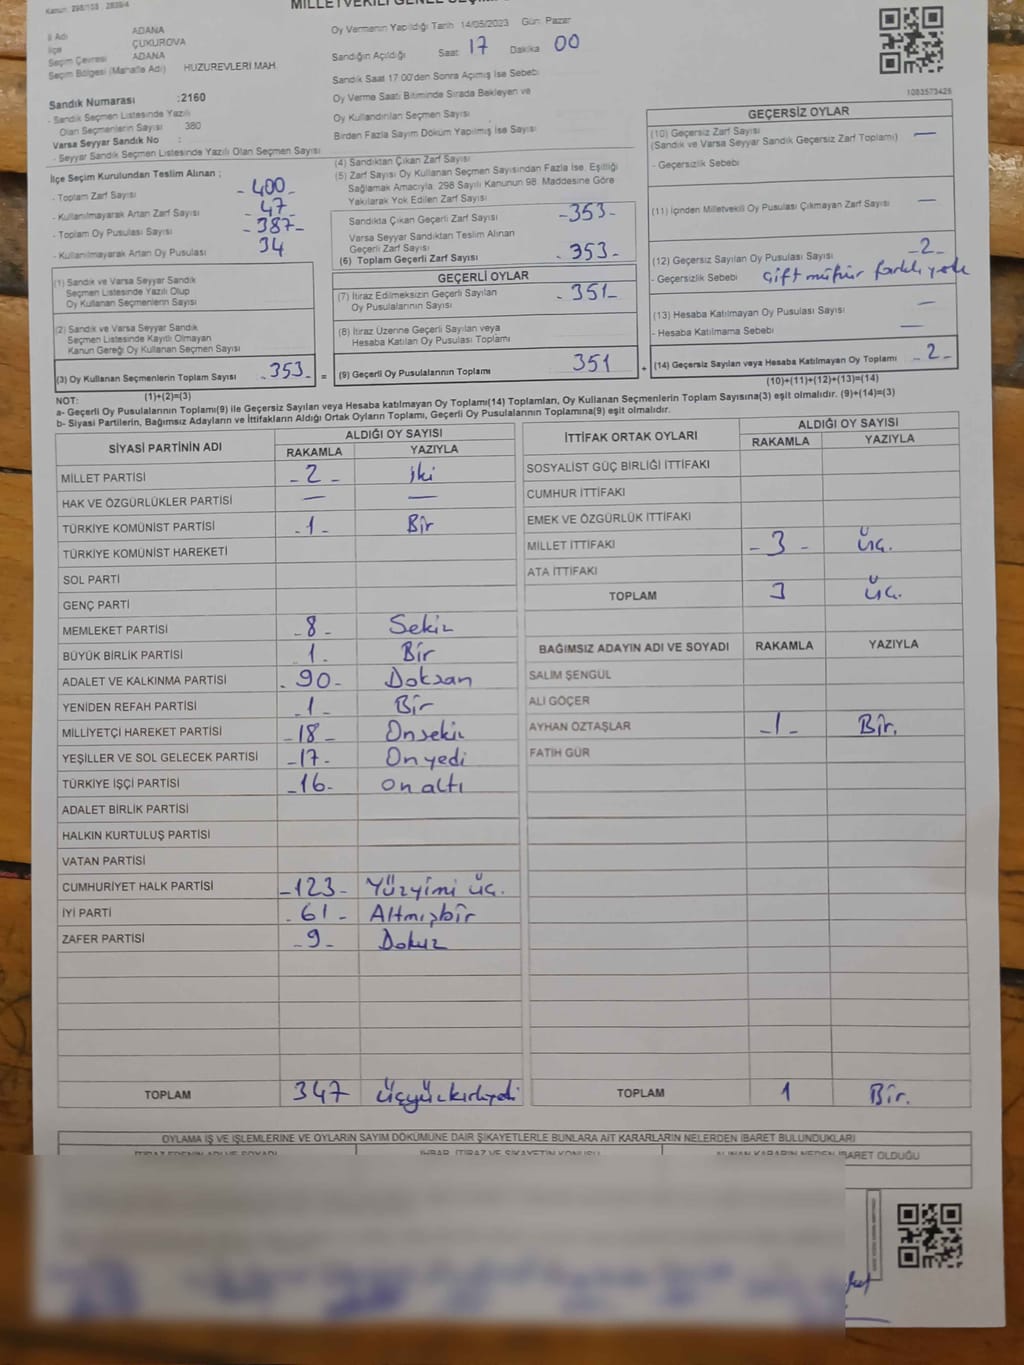 Kanun: 298/103, 2839/4
MİLLETVEKİLİ GENEL
İl Adı ADANA
İlçe ÇUKUROVA
Seçim Çevresi ADANA
Seçim Bölgesi (Mahalle Adı) HUZUREVLERİ MAH.
Oy Vermenin Yapıldığı Tarih 14/05/2023 Gün: Pazar
Sandığın Açıldığı Saat: 17 Dakika 00
Sandık Saat 17:00'den Sonra Açımış İse Sebebi
Oy Verme Saati Bitiminde Sırada Bekleyen ve
Oy Kullandırılan Seçmen Sayısı
Birden Fazla Sayım Döküm Yapılmış İse Sayısı
1083573425
Sandık Numarası :2160
- Sandık Seçmen Listesinde Yazılı
Olan Seçmenlerin Sayısı 380
Varsa Seyyar Sandık No :
- Seyyar Sandık Seçmen Listesinde Yazılı Olan Seçmen Sayısı
İlçe Seçim Kurulundan Teslim Alınan ;
- Toplam Zarf Sayısı - 400 -
- Kullanılmayarak Artan Zarf Sayısı - 47 -
- Toplam Oy Pusulası Sayısı - 387 -
- Kullanılmayarak Artan Oy Pusulası 34
(4) Sandıktan Çıkan Zarf Sayısı
(5) Zarf Sayısı Oy Kullanan Seçmen Sayısından Fazla İse, Eşitliği
Sağlamak Amacıyla, 298 Sayılı Kanunun 98. Maddesine Göre
Yakılarak Yok Edilen Zarf Sayısı
Sandıkta Çıkan Geçerli Zarf Sayısı - 353 -
Varsa Seyyar Sandıktan Teslim Alınan
Geçerli Zarf Sayısı
(6) Toplam Geçerli Zarf Sayısı - 353 -
GEÇERLİ OYLAR
(7) İtiraz Edilmeksizin Geçerli Sayılan
Oy Pusulalarının Sayısı - 351 -
(8) İtiraz Üzerine Geçerli Sayılan veya
Hesaba Katılan Oy Pusulası Toplamı
(9) Geçerli Oy Pusulalarının Toplamı 351
GEÇERSİZ OYLAR
(10) Geçersiz Zarf Sayısı —
(Sandık ve Varsa Seyyar Sandık Geçersiz Zarf Toplamı)
- Geçersizlik Sebebi
(11) İçinden Milletvekili Oy Pusulası Çıkmayan Zarf Sayısı —
(12) Geçersiz Sayılan Oy Pusulası Sayısı - 2 -
- Geçersizlik Sebebi Çift mühür farklı yere
(13) Hesaba Katılmayan Oy Pusulası Sayısı —
- Hesaba Katılmama Sebebi —
(14) Geçersiz Sayılan veya Hesaba Katılmayan Oy Toplamı - 2 -
(10)+(11)+(12)+(13)=(14)
(1) Sandık ve Varsa Seyyar Sandık
Seçmen Listesinde Yazılı Olup
Oy Kullanan Seçmenlerin Sayısı
(2) Sandık ve Varsa Seyyar Sandık
Seçmen Listesinde Kayıtlı Olmayan
Kanun Gereği Oy Kullanan Seçmen Sayısı
(3) Oy Kullanan Seçmenlerin Toplam Sayısı - 353 - =
+
(1)+(2)=(3)
NOT:
a- Geçerli Oy Pusulalarının Toplamı(9) ile Geçersiz Sayılan veya Hesaba katılmayan Oy Toplamı(14) Toplamları, Oy Kullanan Seçmenlerin Toplam Sayısına(3) eşit olmalıdır. (9)+(14)=(3)
b- Siyasi Partilerin, Bağımsız Adayların ve İttifakların Aldığı Ortak Oyların Toplamı, Geçerli Oy Pusulalarının Toplamına(9) eşit olmalıdır.
SİYASİ PARTİNİN ADI ALDIĞI OY SAYISI
RAKAMLA YAZIYLA
MİLLET PARTİSİ - 2 - iki
HAK VE ÖZGÜRLÜKLER PARTİSİ — —
TÜRKİYE KOMÜNİST PARTİSİ - 1 - Bir
TÜRKİYE KOMÜNİST HAREKETİ
SOL PARTİ
GENÇ PARTİ
MEMLEKET PARTİSİ - 8 - Sekiz
BÜYÜK BİRLİK PARTİSİ 1 . Bir
ADALET VE KALKINMA PARTİSİ - 90 - Doksan
YENİDEN REFAH PARTİSİ - 1 - Bir
MİLLİYETÇİ HAREKET PARTİSİ - 18 - Onsekiz
YEŞİLLER VE SOL GELECEK PARTİSİ - 17 - Onyedi
TÜRKİYE İŞÇİ PARTİSİ - 16 - on altı
ADALET BİRLİK PARTİSİ
HALKIN KURTULUŞ PARTİSİ
VATAN PARTİSİ
CUMHURİYET HALK PARTİSİ - 123 - Yüzyirmi üç.
İYİ PARTİ - 61 - Altmışbir
ZAFER PARTİSİ - 9 - Dokuz
TOPLAM 347 üçyüzkırkyedi
İTTİFAK ORTAK OYLARI ALDIĞI OY SAYISI
RAKAMLA YAZIYLA
SOSYALİST GÜÇ BİRLİĞİ İTTİFAKI
CUMHUR İTTİFAKI
EMEK VE ÖZGÜRLÜK İTTİFAKI
MİLLET İTTİFAKI - 3 - üç.
ATA İTTİFAKI
TOPLAM 3 üç.
BAĞIMSIZ ADAYIN ADI VE SOYADI RAKAMLA YAZIYLA
SALİM ŞENGÜL
ALİ GÖÇER
AYHAN ÖZTAŞLAR - 1 - Bir.
FATİH GÜR
TOPLAM 1 Bir.
OYLAMA İŞ VE İŞLEMLERİNE VE OYLARIN SAYIM DÖKÜMÜNE DAİR ŞİKAYETLERLE BUNLARA AİT KARARLARIN NELERDEN İBARET BULUNDUKLARI
İTİRAZ EDENİN ADI VE SOYADI İHBAR, İTİRAZ VE ŞİKAYETİN KONUSU ALINAN KARARIN NEDEN İBARET OLDUĞU